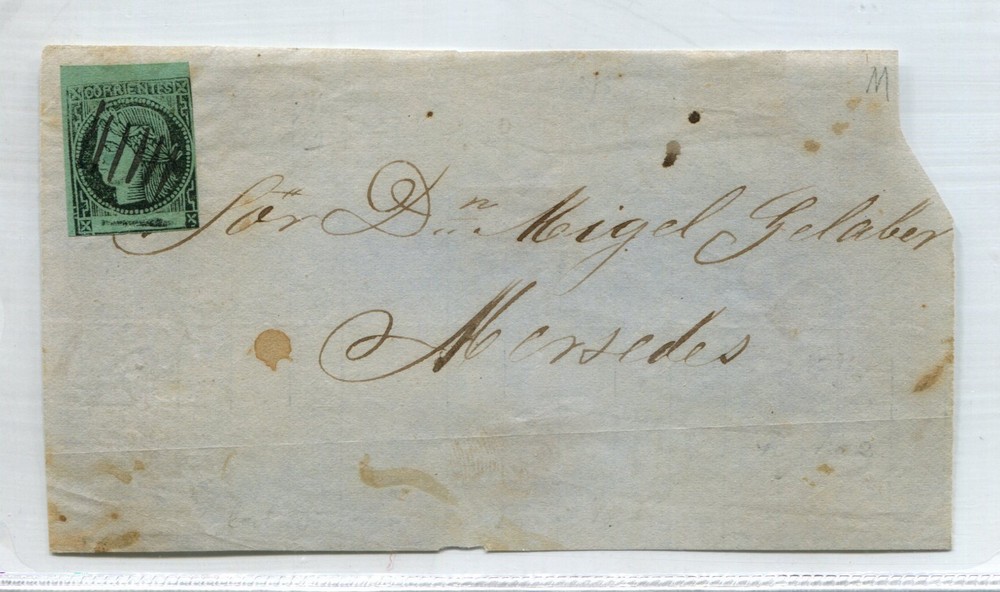 CORRIENTES
M
Sōr Dn. Migel Gelaber
Mersedes